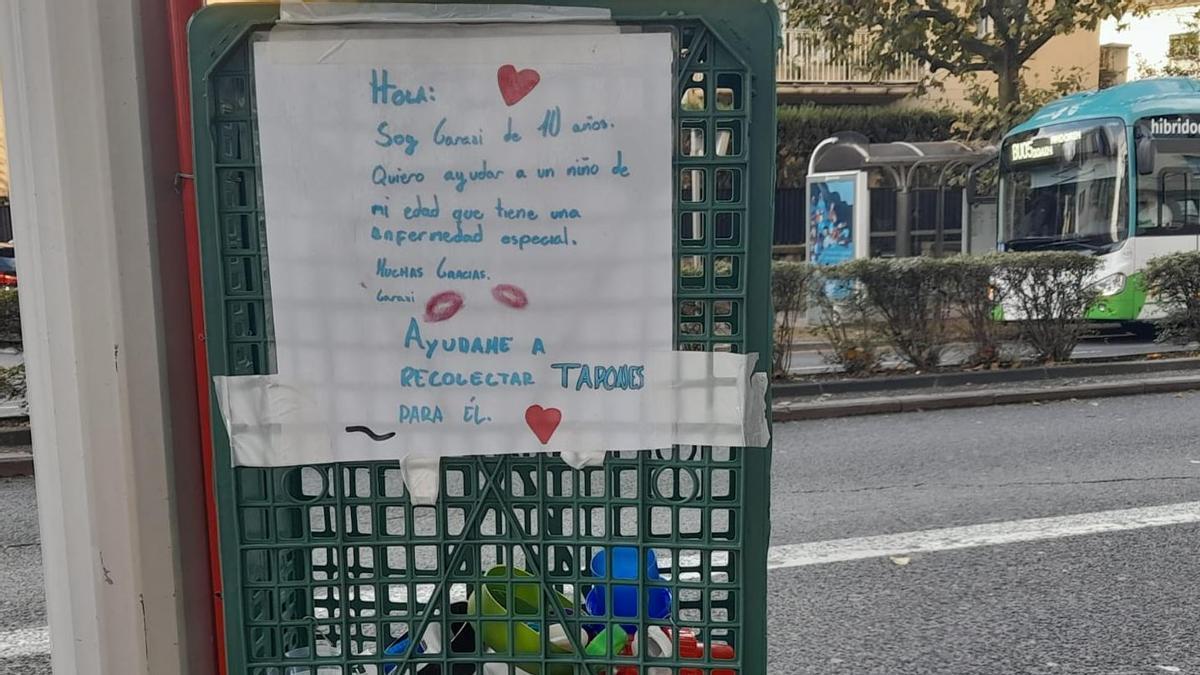 HOLA:
Soy Garazi de 10 años.
Quiero ayudar a un niño de
mi edad que tiene una
enfermedad especial.
MUCHAS GRACIAS.
Garazi
AYUDAME A
RECOLECTAR TAPONES
PARA ÉL.
hibrido